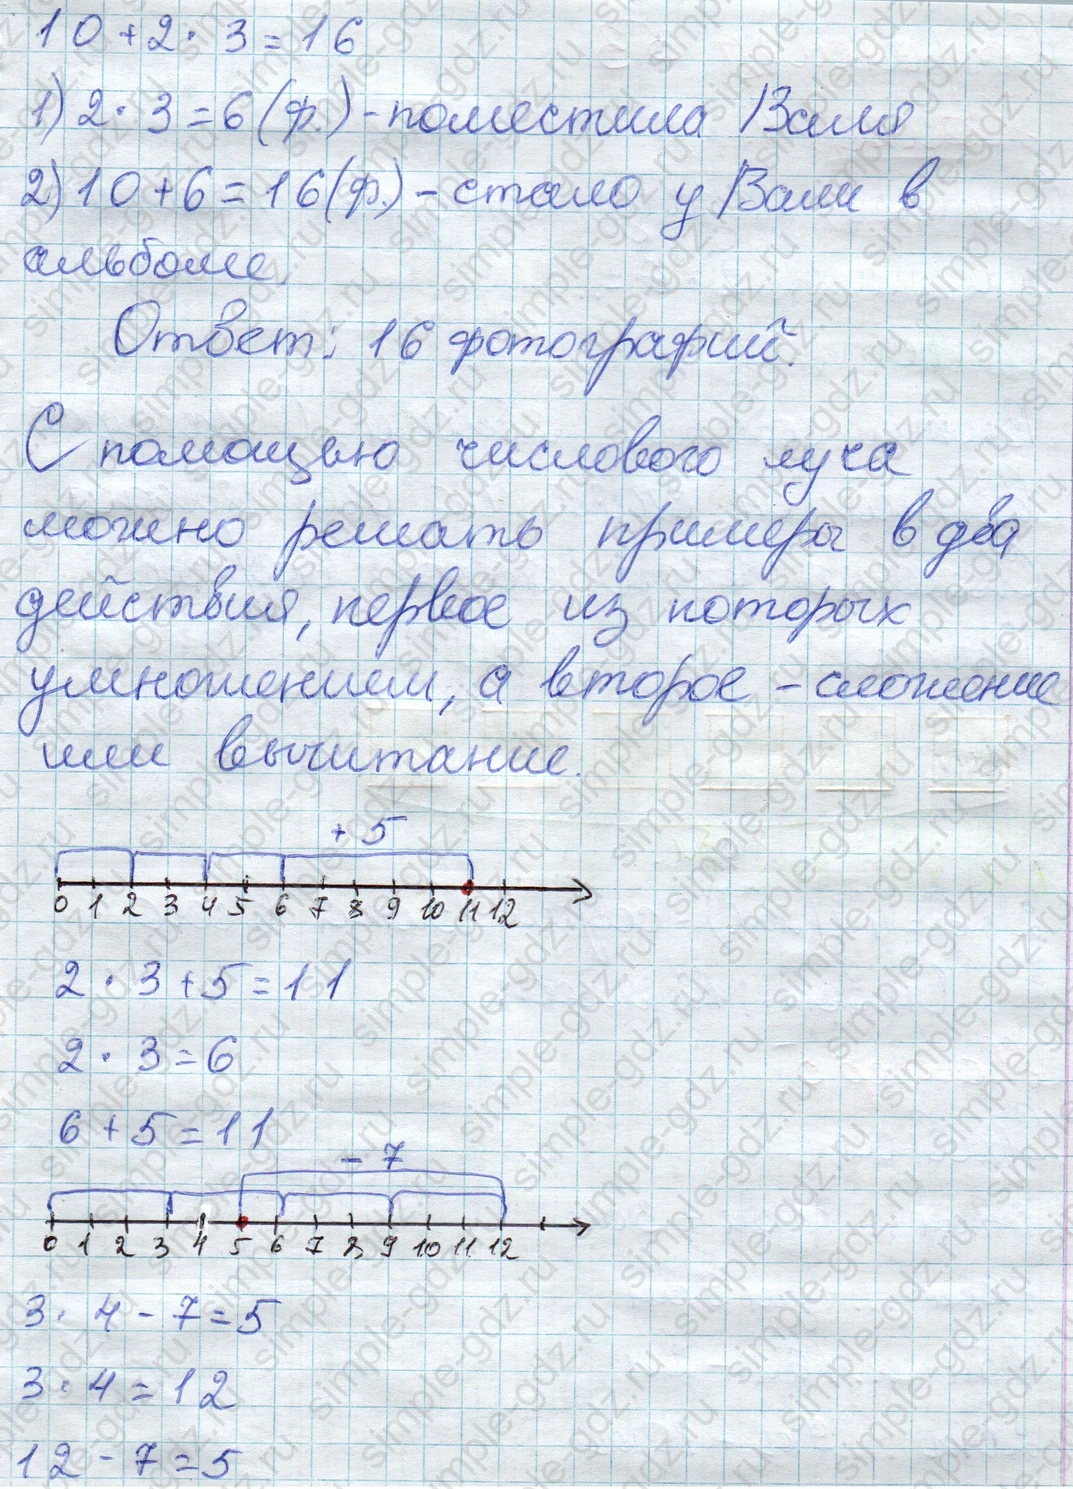 10+2·3=16
1) 2·3=6(ф.)-поместила Валя
2) 10+6=16(ф.)-стало у Вали в
альбоме.
Ответ: 16 фотографий.
С помощью числового луча
можно решать примеры в два
действия, первое из которых
умножением, а второе - сложение
или вычитание.
+5
0 1 2 3 4 5 6 7 8 9 10 11 12
2·3+5=11
2·3=6
6+5=11
-7
0 1 2 3 4 5 6 7 8 9 10 11 12
3·4-7=5
3·4=12
12-7=5
simple-gdz.ru